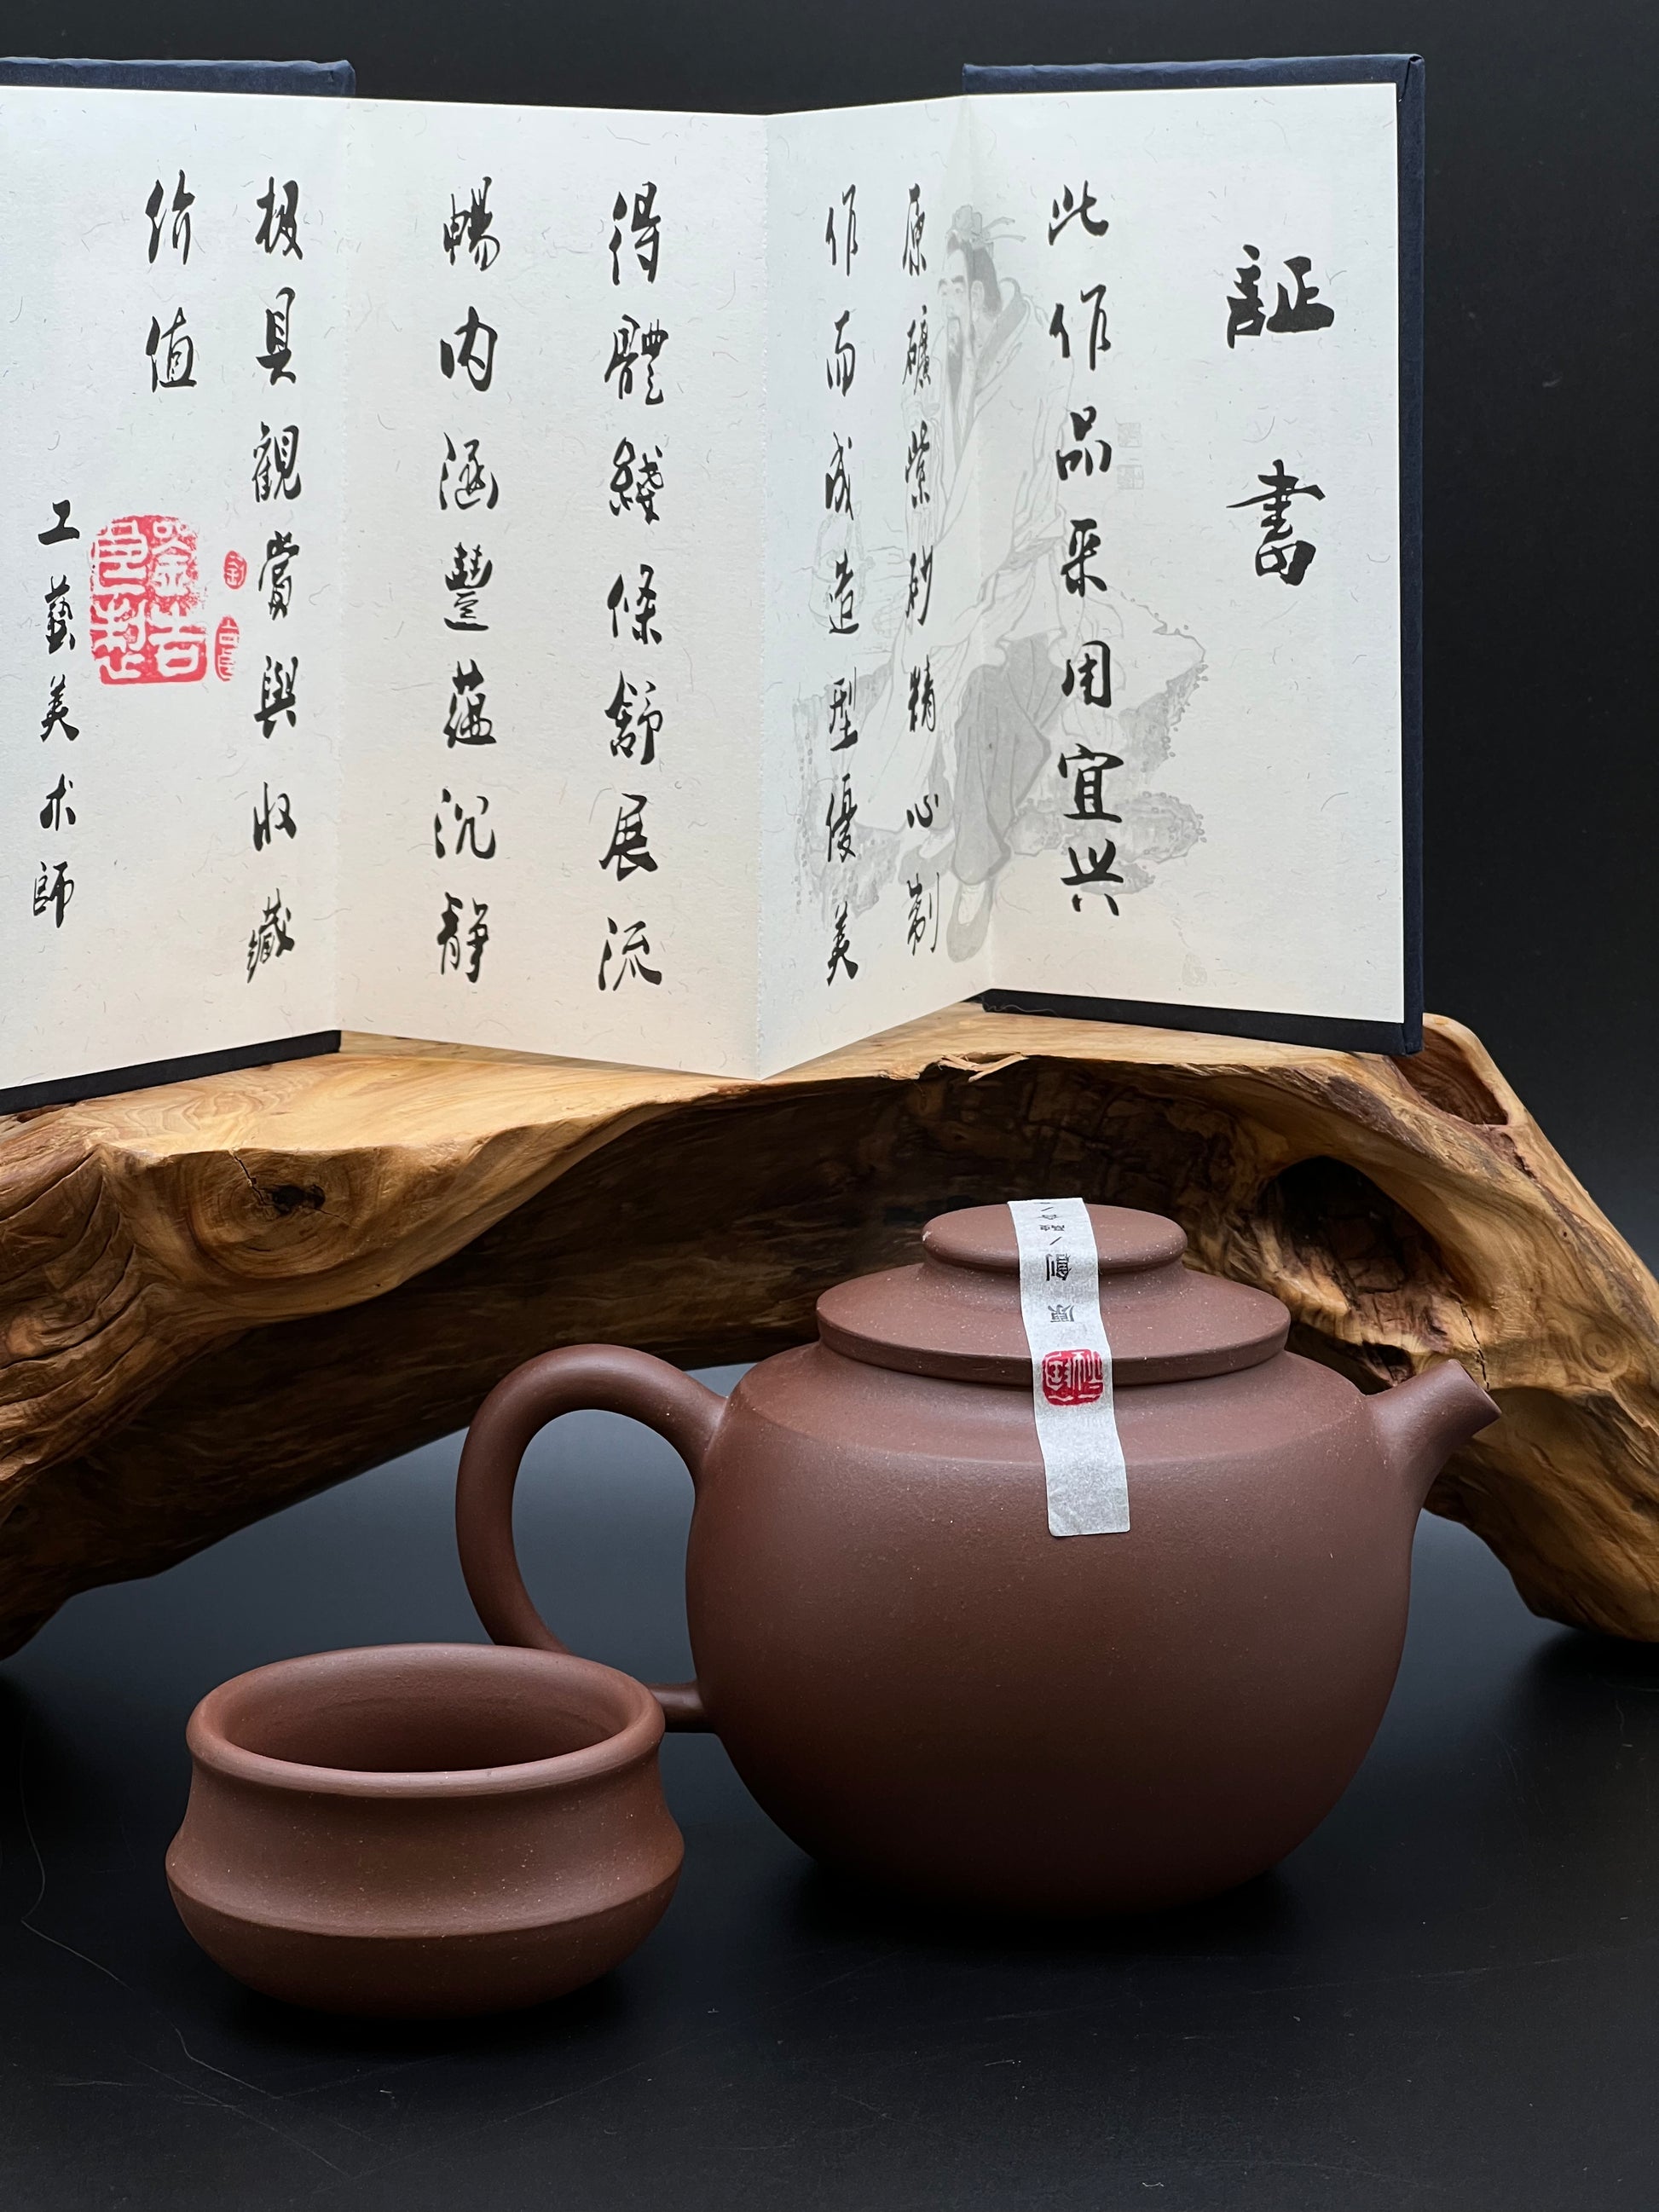 証書
此作品采用宜兴
原礦紫砂精心制
作而成造型優美
得體綫條舒展流
暢内涵豐蕴沉靜
极具觀賞與收藏
价值
工藝美术師
原創